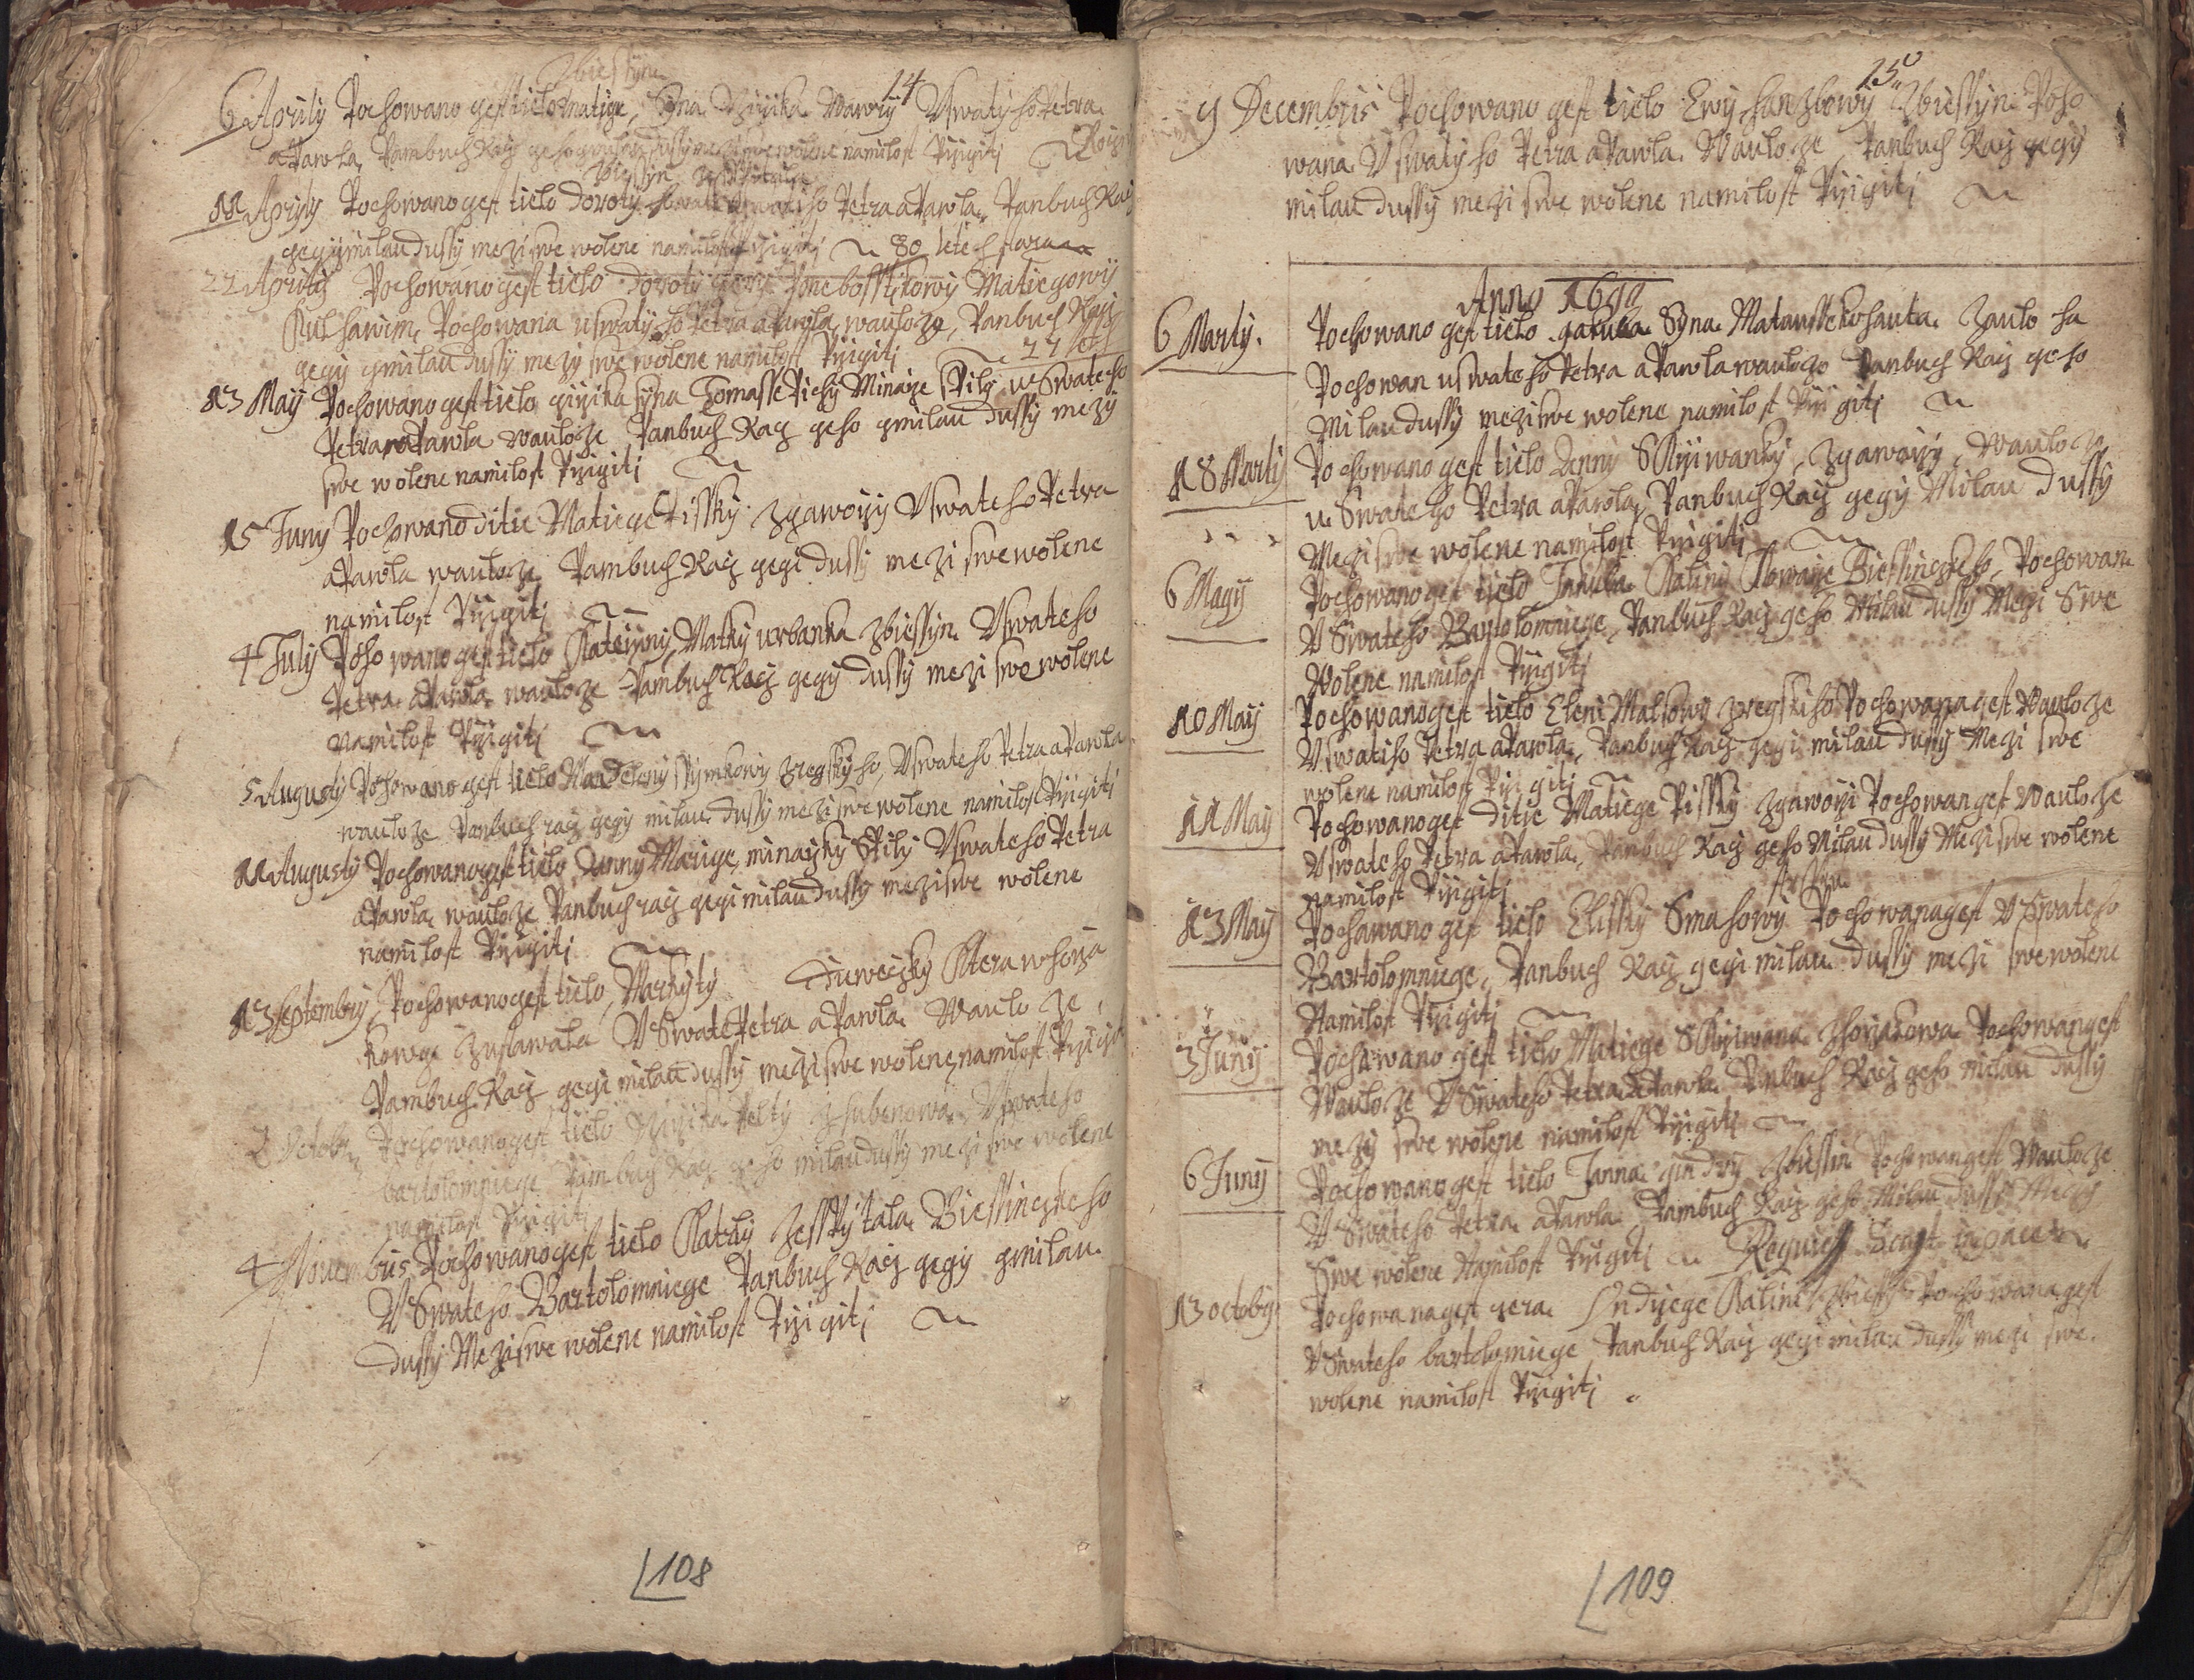 Zbiessyna
14
6 Aprily Pochowano gest tielo Matige, Syna Wawry Uswatyho Petra
aPawla, Pambuch Racz geho dussy mezi swe wolene namilost Przigiti
11 Aprily Pochowano gest tielo Doroty Petra aPawla, Panbuch Racz
gegy milau dussy mezi swe wolene namilost Przigiti 80 letech stara
22 Aprily Pochowano gest tielo Doroty Matiegowy
Pochowana uswatyho Petra aPawla wauloze, Panbuch Racz
gegy gmilau dussy mezy swe wolene namilost Przigiti
13 May Pochowano gest tielo girzika syna Tomasse Pichy Minarze Spily uSwateho
Petra aPawla wauloze Panbuch Racz geho gmilau dussy mezy
swe wolene namilost Przigiti
15 Juny Pochowano ditie Matiege Pissky zgaworzy Uswateho Petra
aPawla wauloze Pambuch Racz gegi dussy mezi swe wolene
namilost Przigiti
4 July Pochowano gest tielo Katerzyny Matky urbanka zbiessyn Uswateho
Petra aPawla wauloze Pambuch Racz gegy dussy mezi swe wolene
namilost Przigiti
5 Augusty Pochowano gest tielo Mandeleny zregskyho, Uswateho Petra aPawla
wauloze Panbuch racz gegy milau dussy mezi swe wolene namilost Przigiti
11 Augusty Pochowano gest tielo Anny Marige, minarzky Spily Uswateho Petra
aPawla wauloze Panbuch racz gegi milau dussy mezi swe wolene
namilost Przigiti
13 Septembry Pochowano gest tielo Markyty diweczky Ktera whorza
kowge zustawala USwate Petra aPawla Wauloze,
Pambuch Racz gegi milau dussy mezi swe wolene namilost Przigiti
2 Octobry Pochowano gest tielo Uswateho
bartolomniege Pambuch Racz geho milau dussy mezi swe wolene
namilost Przigiti
4 Novembris Pochowano gest tielo Katrzy zesspytala Biessineczkeho
USwateho Bartolomniege Panbuch Racz gegy gmilau
dussy Mezi swe wolene namilost Przigiti
108
15
9 Decembris Pochowano gest tielo Ewy hanzlowy zbiessyn Poho
wana Uswatyho Petra aPawla Wauloze, Panbuch Racz gegy
milau dussy mezi swe wolene namilost Przigiti
Anno 1699
6 Marty. Pochowano gest tielo Syna Zauloha
Pochowan uswateho Petra aPawla wauloze Panbuch Racz geho
Milau dussy mezi swe wolene namilost Przigiti
18 Marty Pochowano gest tielo Anny Skrziwanky, zgaworzy, Wauloze
uSwateho Petra aPawla, Panbuch Racz gegy Milau dussy
Mezi swe wolene namilost Przigiti
6 Magy Pochowano gest tielo Januka Kaliny Kowarze Biessineczkeho, Pochowan
USwateho Bartolomniege, Panbuch Racz geho Milau dussy Mezi Swe
Wolene namilost Przigiti
10 May Pochowano gest tielo Eleni Malkowy zregskiho Pochowana gest Wauloze
Uswatiho Petra aPawla, Panbuch Racz gegi milau dussy Mezi swe
wolene namilost Przigiti
11 May Pochowano gest ditie Matiege Pissky zgaworzi Pochowan gest Wauloze
Uswateho Petra aPawla, Panbuch Racz geho Milau dussy Mezi swe wolene
namilost Przigiti
13 May Pochowano gest tielo Elissky Smahowy Pochowana gest USwateho
Bartolomniege, Panbuch Racz gegi milau dussy mezi swe wolene
Namilost Przigiti
3 Juny Pochowano gest tielo Matiege Skrziwana zhorzakowa Pochowan gest
Wauloze USwateho Petra aPawla Panbuch Racz geho milau dussy
mezy swe wolene namilost Przigiti
6 Juny Pochowano gest tielo Janna gindry zbiessin Pochowan gest Wauloze
USwateho Petra aPawla Pambuch Racz geho Milau dussy Mezy
Swe wolene Namilost Przigiti in pace
13 octobry Pochowana gest czera Ondrzege Kaliny zbiessyn Pochowana gest
USwateho bartolomniege Panbuch Racz gegi milau dussy mezi swe
wolene namilost Przigiti
109